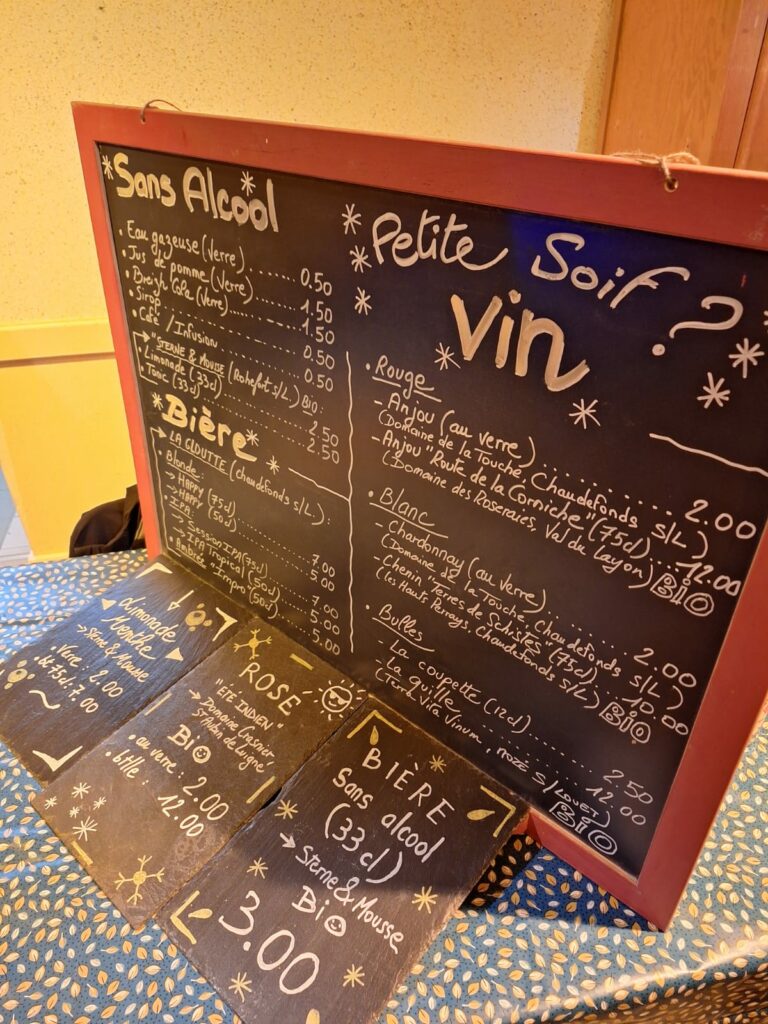 Sans Alcool
• Eau gazeuse (verre) ........ 0.50
• Jus de pomme (verre) ........ 1.50
• Breizh Cola (verre) ........ 1.50
• Sirop ........ 0.50
• Café / Infusion ........ 0.50
→ "STERNE & MOUSSE (Rochefort s/L.) BIO :
• Limonade (33cl) ........ 2.50
• Tonic (33cl) ........ 2.50
Bière
→ LA GLOUTTE (Chaudefonds s/L) :
• Blonde :
→ HAPPY (75cl) ........ 7.00
→ HAPPY (50cl) ........ 5.00
• IPA :
→ Session IPA (75cl) ........ 7.00
→ IPA Tropical (50cl) ........ 5.00
• Ambrée "Impro" (50cl) ........ 5.00
Petite Soif ?
Vin
• Rouge
- Anjou (au verre) ........ 2.00
(Domaine de la Touche, Chaudefonds s/L)
- Anjou "Route de la Corniche" (75cl) ... 12.00
(Domaine des Roseraies, Val du Layon) BIO
• Blanc
- Chardonnay (au verre) ........ 2.00
(Domaine de la Touche, Chaudefonds s/L)
- Chenin "Terres de Schistes" (75cl) ... 10.00
(les Hauts Perrays, Chaudefonds s/L) BIO
• Bulles
- La coupette (12cl) ........ 2.50
- La quille ........ 12.00
(Terra Vita Vinum, MOZÉ S/LOUET) BIO
Limonade
Menthe
→ Sterne & Mousse
• Verre : 2.00
• bt 75cl : 7.00
ROSE
"ETÉ INDIEN"
→ Domaine Gresnier,
St Aubin de Luigne
BIO
• au verre : 2.00
• btlle : 12.00
BIÈRE
Sans alcool
(33 cl)
→ Sterne & Mousse
BIO
3.00